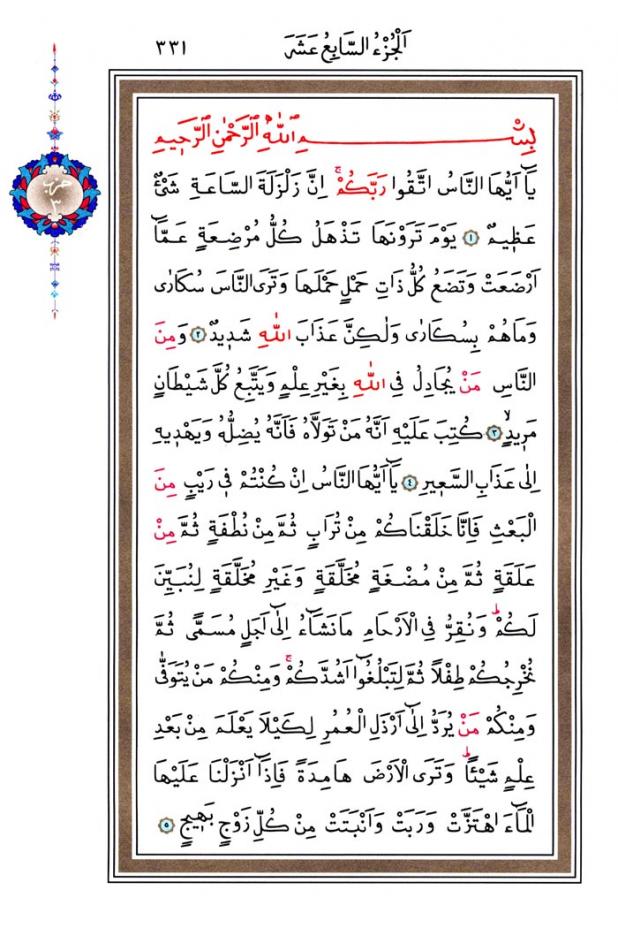 اَلْجُزْءُ السَّابِعُ عَشَرَ
٣٣١
حزب
٣
بِسْمِ اللّٰهِ الرَّحْمٰنِ الرَّحِيمِ
يَٓا اَيُّهَا النَّاسُ اتَّقُوا رَبَّكُمْۚ اِنَّ زَلْزَلَةَ السَّاعَةِ شَيْءٌ
عَظ۪يمٌ ١ يَوْمَ تَرَوْنَهَا تَذْهَلُ كُلُّ مُرْضِعَةٍ عَمَّٓا
اَرْضَعَتْ وَتَضَعُ كُلُّ ذَاتِ حَمْلٍ حَمْلَهَا وَتَرَى النَّاسَ سُكَارٰى
وَمَاهُمْ بِسُكَارٰى وَلٰكِنَّ عَذَابَ اللّٰهِ شَد۪يدٌ ٢ وَمِنَ
النَّاسِ مَنْ يُجَادِلُ فِي اللّٰهِ بِغَيْرِ عِلْمٍ وَيَتَّبِعُ كُلَّ شَيْطَانٍ
مَر۪يدٍۙ ٣ كُتِبَ عَلَيْهِ اَنَّهُ مَنْ تَوَلَّاهُ فَاَنَّهُ يُضِلُّهُ وَيَهْد۪يهِ
اِلٰى عَذَابِ السَّع۪يرِ ٤ يَٓا اَيُّهَا النَّاسُ اِنْ كُنْتُمْ ف۪ي رَيْبٍ مِنَ
الْبَعْثِ فَاِنَّا خَلَقْنَاكُمْ مِنْ تُرَابٍ ثُمَّ مِنْ نُطْفَةٍ ثُمَّ مِنْ
عَلَقَةٍ ثُمَّ مِنْ مُضْغَةٍ مُخَلَّقَةٍ وَغَيْرِ مُخَلَّقَةٍ لِنُبَيِّنَ
لَكُمْۜ وَنُقِرُّ فِي الْاَرْحَامِ مَا نَشَٓاءُ اِلٰٓى اَجَلٍ مُسَمًّى ثُمَّ
نُخْرِجُكُمْ طِفْلاً ثُمَّ لِتَبْلُغُٓوا اَشُدَّكُمْۚ وَمِنْكُمْ مَنْ يُتَوَفّٰى
وَمِنْكُمْ مَنْ يُرَدُّ اِلٰٓى اَرْذَلِ الْعُمُرِ لِكَيْلَا يَعْلَمَ مِنْ بَعْدِ
عِلْمٍ شَيْـًٔاۜ وَتَرَى الْاَرْضَ هَامِدَةً فَاِذَٓا اَنْزَلْنَا عَلَيْهَا
الْمَٓاءَ اهْتَزَّتْ وَرَبَتْ وَاَنْبَتَتْ مِنْ كُلِّ زَوْجٍ بَه۪يجٍ ٥